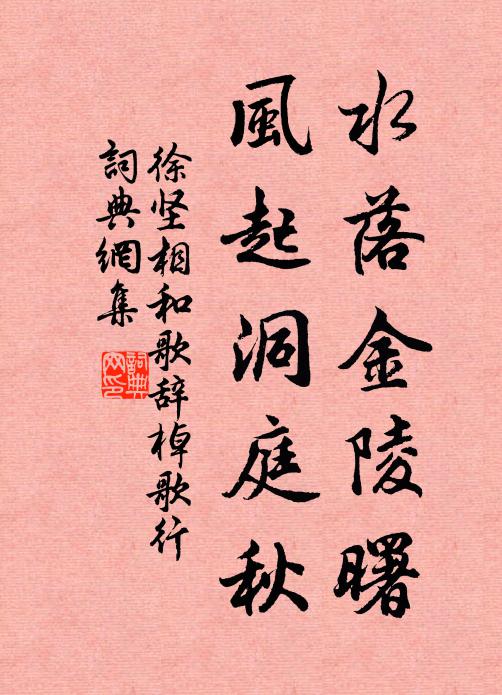 水落金陵曙
風起洞庭秋
徐坚相和歌辞棹歌行
詞典網集
詞典
网印